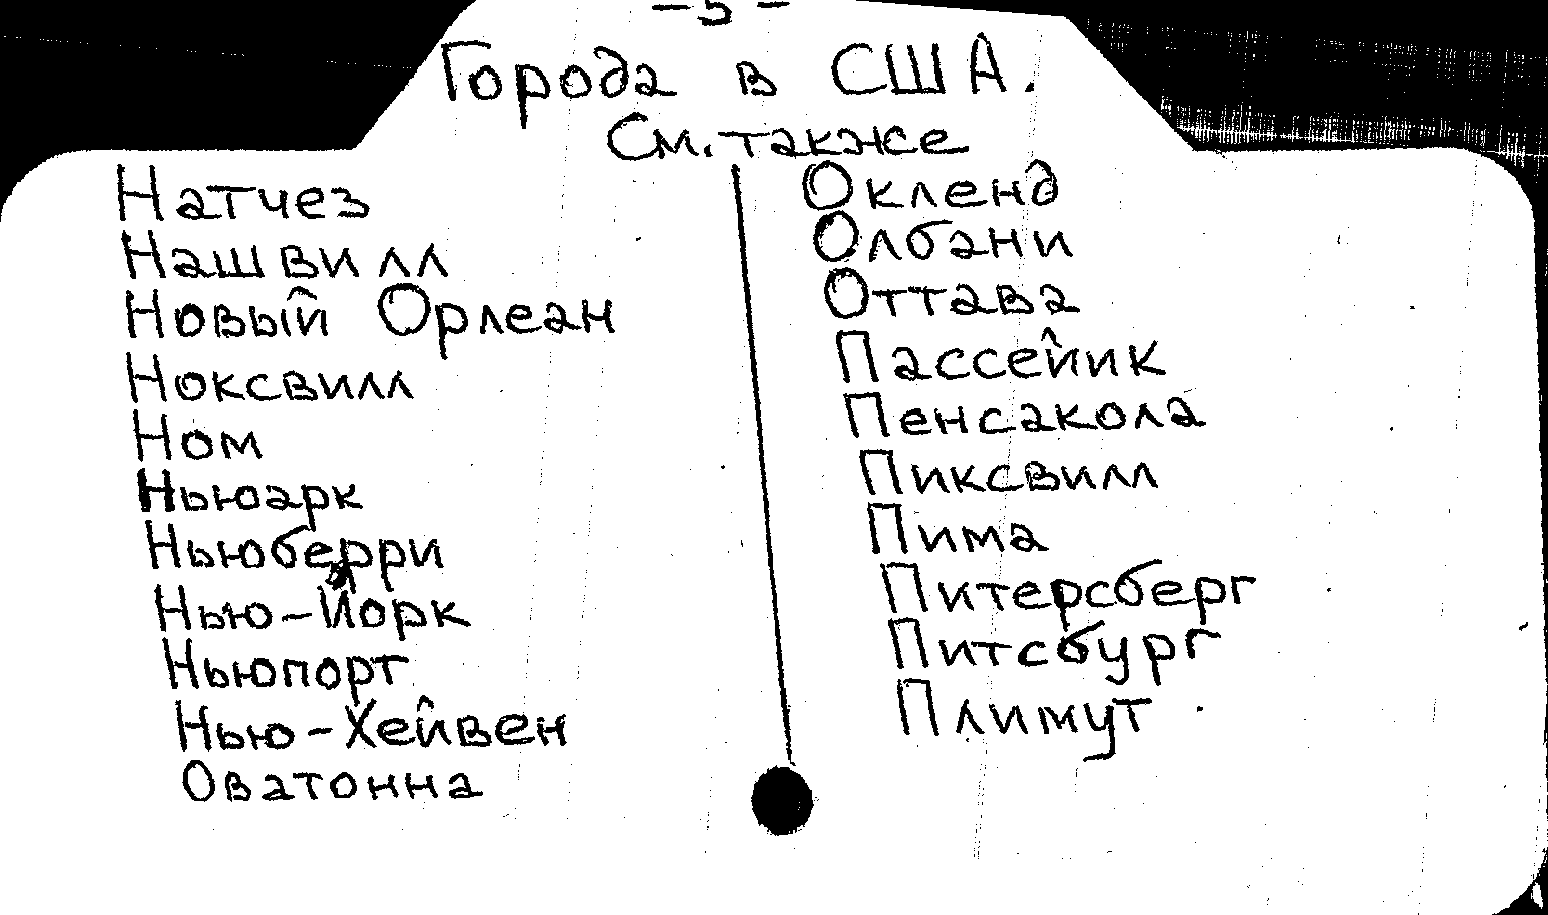 - 5 -
Города в США.
См. также
Натчез
Нашвилл
Новый Орлеан
Ноксвилл
Ном
Ньюарк
Ньюберри
Нью-Йорк
Ньюпорт
Нью-Хейвен
Оватонна
Окленд
Олбани
Оттава
Пассейик
Пенсакола
Пиксвилл
Пима
Питерсберг
Питсбург
Плимут